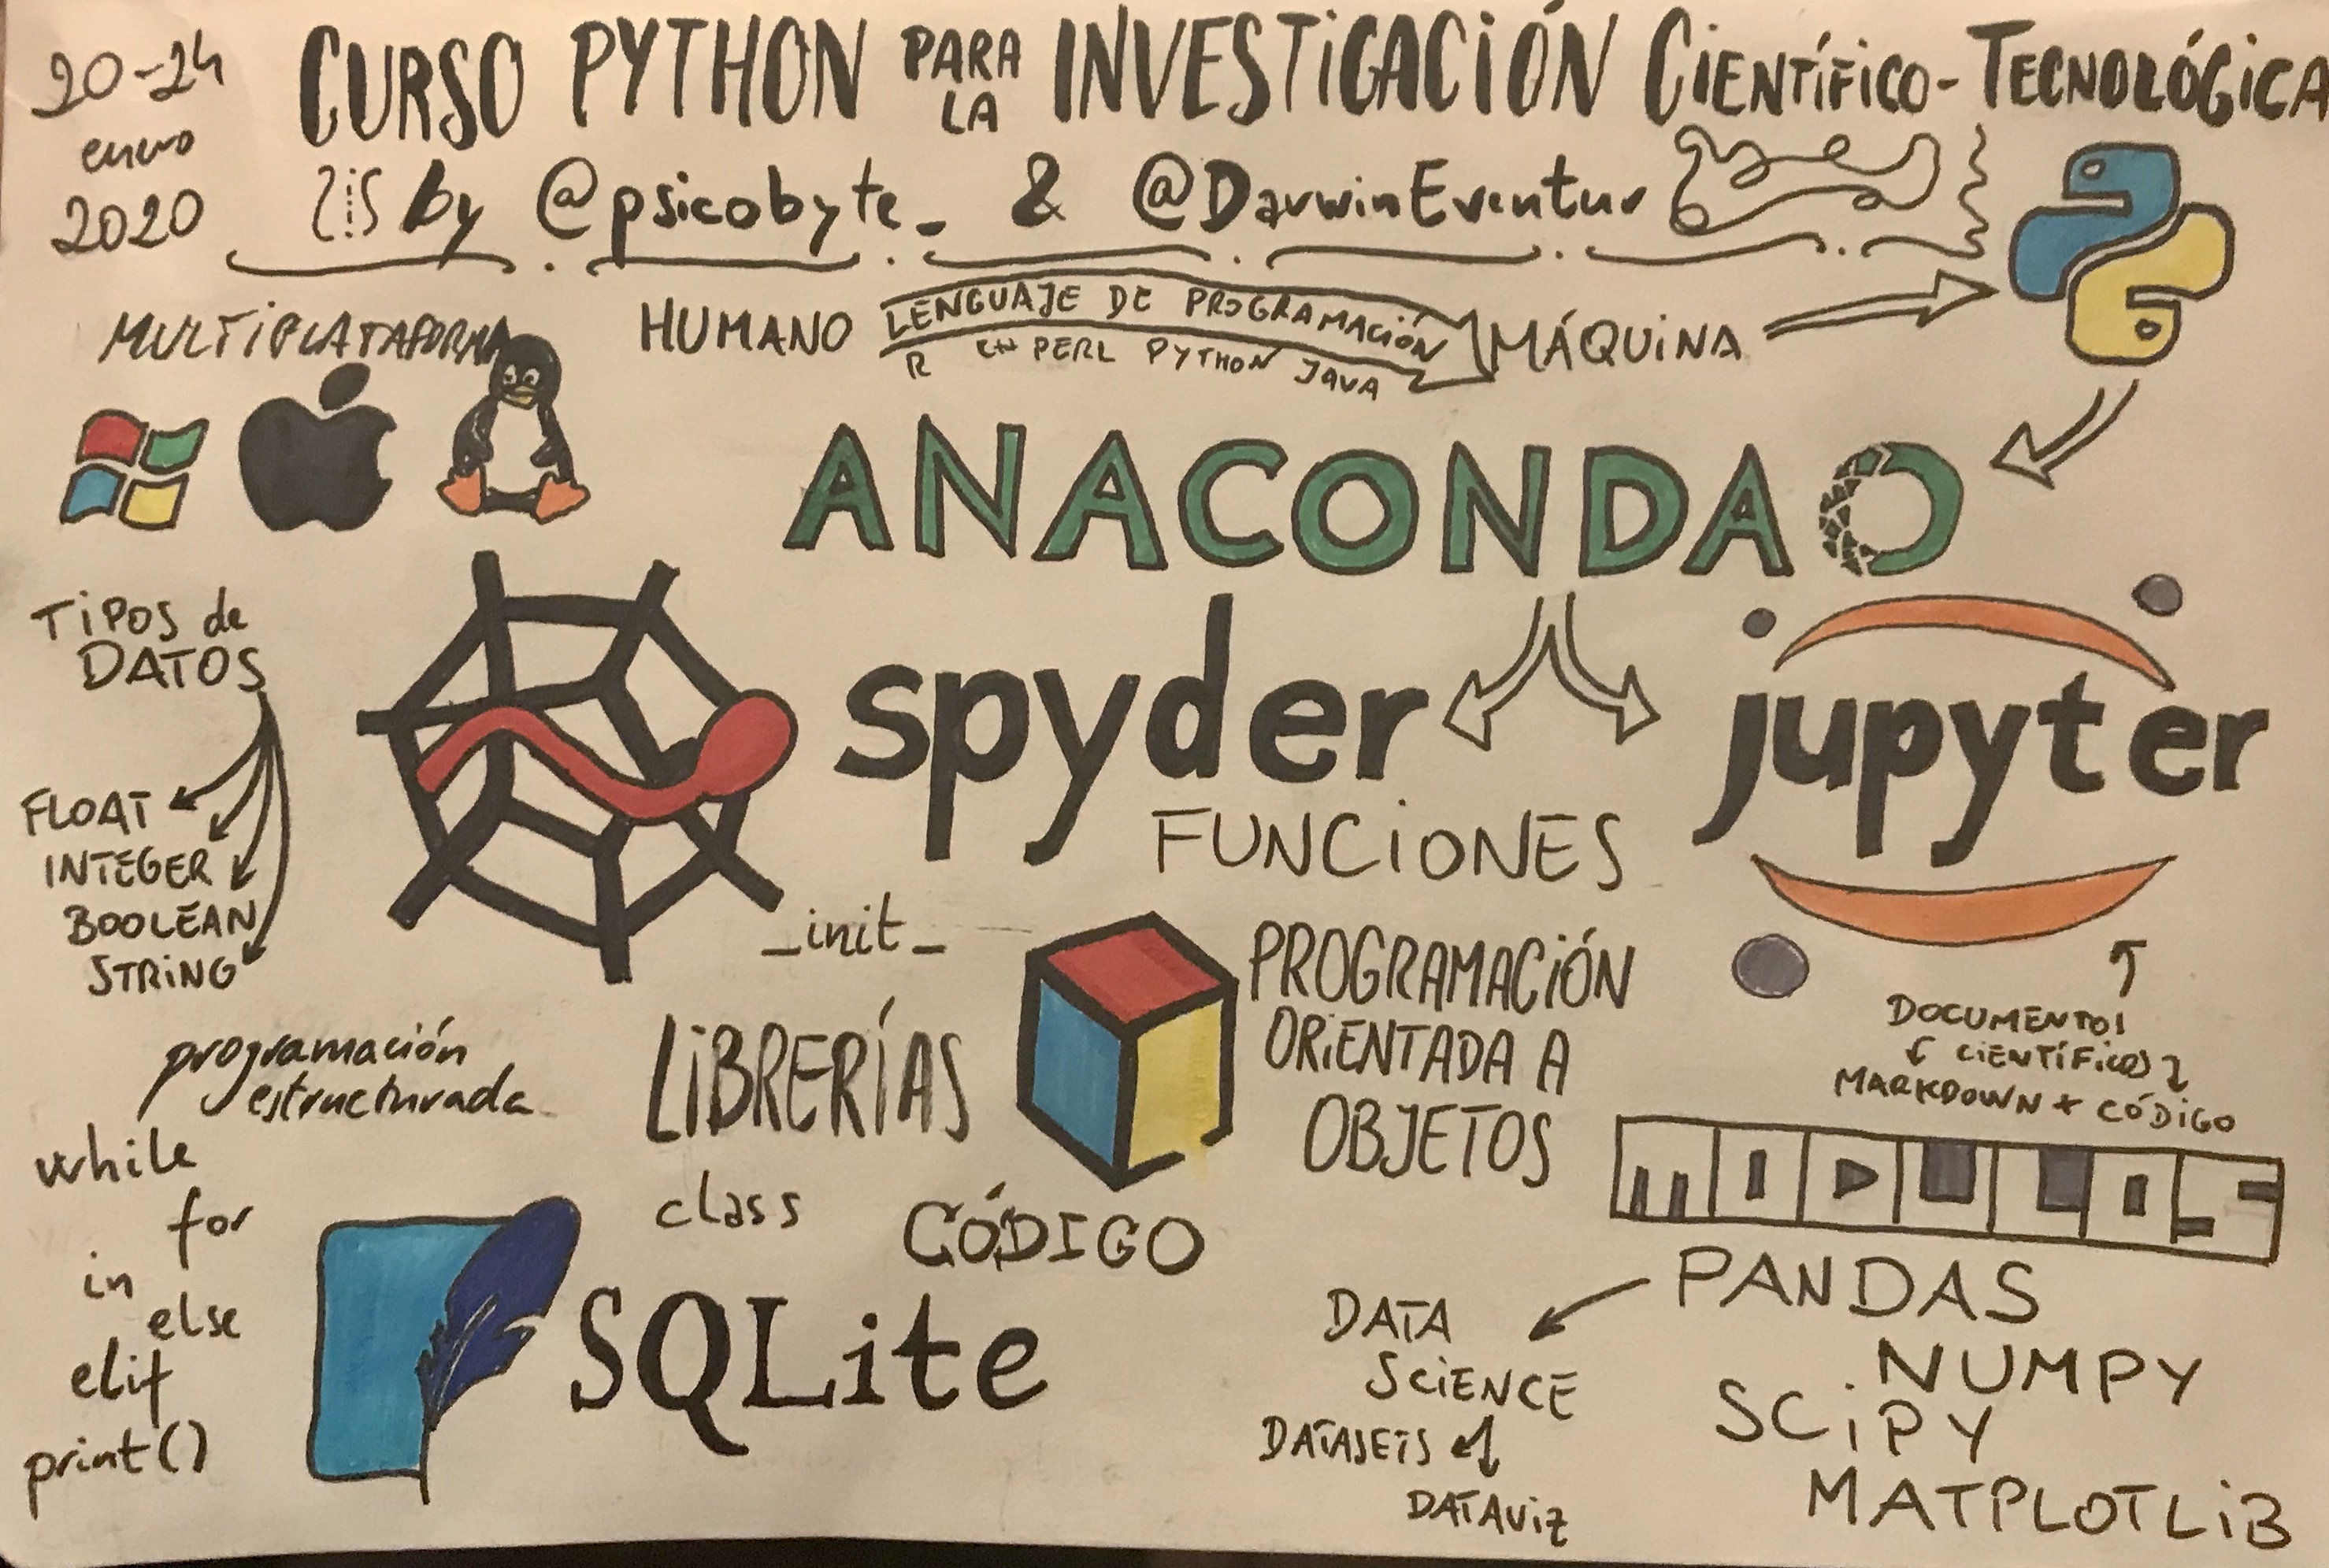 20-24
enero
2020
CURSO PYTHON PARA LA INVESTIGACIÓN CIENTÍFICO-TECNOLÓGICA
by @psicobyte_ & @DarwinEventur
MULTIPLATAFORMA
HUMANO
LENGUAJE DE PROGRAMACIÓN
R C++ PERL PYTHON JAVA
MÁQUINA
ANACONDA
TIPOS de
DATOS
FLOAT
INTEGER
BOOLEAN
STRING
spyder
jupyter
FUNCIONES
_init_
PROGRAMACIÓN
ORIENTADA A
OBJETOS
DOCUMENTOS
CIENTÍFICOS
MARKDOWN + CÓDIGO
programación
estructurada
while
for
in
else
elif
print()
LIBRERÍAS
class
CÓDIGO
SQLite
MODULOS
PANDAS
NUMPY
SCIPY
MATPLOTLIB
DATA
SCIENCE
DATASETS
DATAVIZ